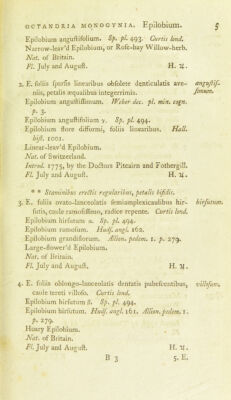 OCTANDRIA MONOGYNIA. Epilobium. 5
Epilobium anguſtifolium. Sp. pl. 493. Curtis lond.
Narrow-leav'd Epilobium, or Roſe-bay Willow-herb.
Nat. of Britain.
Fl. July and Auguſt. H. ♃.
2. E. foliis ſparſis linearibus obſolete denticulatis aveniis, petalis æqualibus integerrimis. anguſtiſſimum.
Epilobium anguſtiſſimum. Weber dec. pl. min. cogn.
p. 3.
Epilobium anguſtifolium γ. Sp. pl. 494.
Epilobium flore difformi, foliis linearibus. Hall.
hiſt. 1001.
Linear-leav'd Epilobium.
Nat. of Switzerland.
Introd. 1775, by the Doctors Pitcairn and Fothergill.
Fl. July and Auguſt. H. ♃.
* * Staminibus erectis regularibus, petalis bifidis.
3. E. foliis ovato-lanceolatis ſemiamplexicaulibus hirſutis, caule ramoſiſſimo, radice repente. Curtis lond. hirſutum.
Epilobium hirſutum α. Sp. pl. 494.
Epilobium ramoſum. Hudſ. angl. 162.
Epilobium grandiflorum. Allion. pedem. 1. p. 279.
Large-flower'd Epilobium.
Nat. of Britain.
Fl. July and Auguſt. H. ♃.
4. E. foliis oblongo-lanceolatis dentatis pubeſcentibus, villoſum.
caule tereti villoſo. Curtis lond.
Epilobium hirſutum β. Sp. pl. 494.
Epilobium hirſutum. Hudſ. angl. 161. Allion. pedem. 1.
p. 279.
Hoary Epilobium.
Nat. of Britain.
Fl. July and Auguſt. H. ♃.
B 3 5. E.